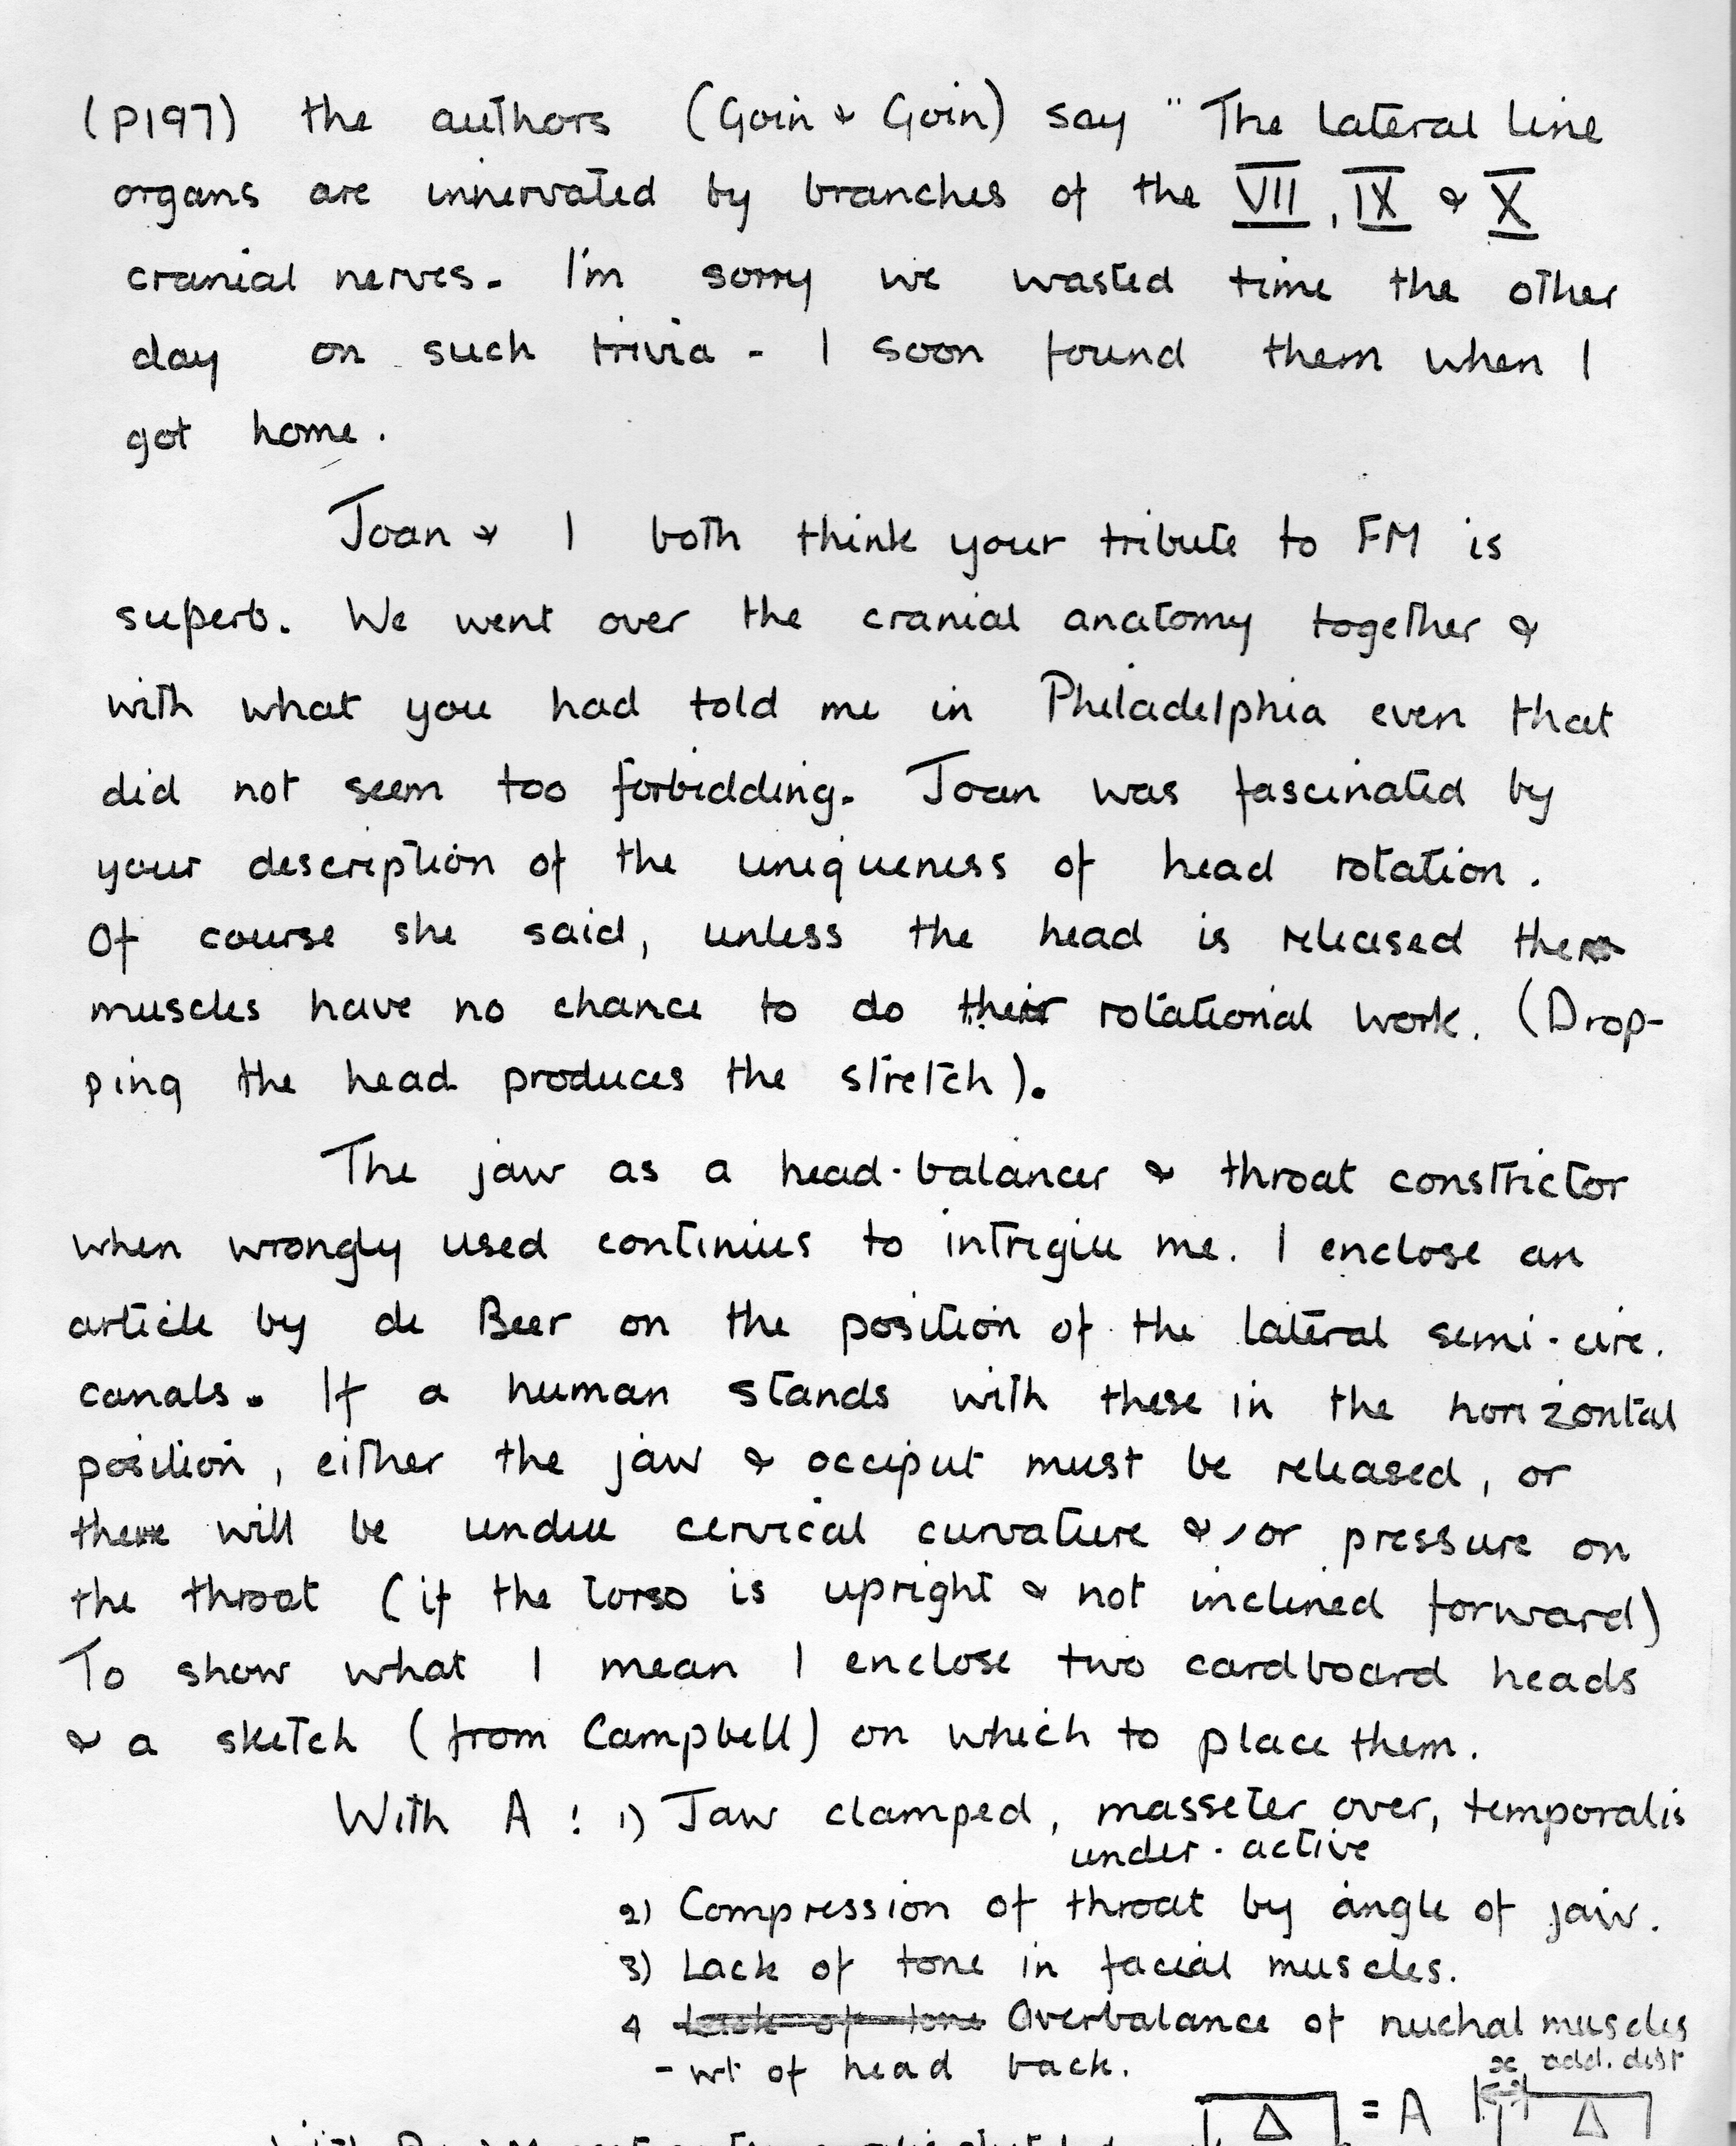 (P197) the authors (Goin & Goin) say " The lateral line
organs are innervated by branches of the VII, IX & X
cranial nerves. I'm sorry we wasted time the other
day on such trivia - I soon found them when I
got home.
Joan & I both think your tribute to FM is
superb. We went over the cranial anatomy together &
with what you had told me in Philadelphia even that
did not seem too forbidding. Joan was fascinated by
your description of the uniqueness of head rotation.
Of course she said, unless the head is released the
muscles have no chance to do their rotational work. (Drop-
ping the head produces the stretch).
The jaw as a head-balancer & throat constrictor
when wrongly used continues to intrigue me. I enclose an
article by de Beer on the position of the lateral semi-circ.
canals. If a human stands with these in the horizontal
position, either the jaw & occiput must be released, or
there will be undue cervical curvature &/or pressure on
the throat (if the torso is upright & not inclined forward)
To show what I mean I enclose two cardboard heads
& a sketch (from Campbell) on which to place them.
With A : 1) Jaw clamped, masseter over, temporalis
under-active
2) Compression of throat by angle of jaw.
3) Lack of tone in facial muscles.
4 Lack of tone Overbalance of nuchal muscles
- wt of head back.
x add. dist
= A